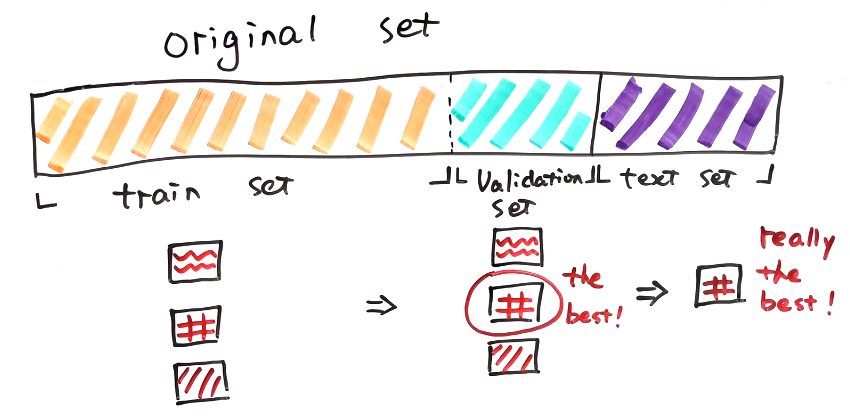 original set
train set
Validation
set
text set
the
best!
really
the
best!